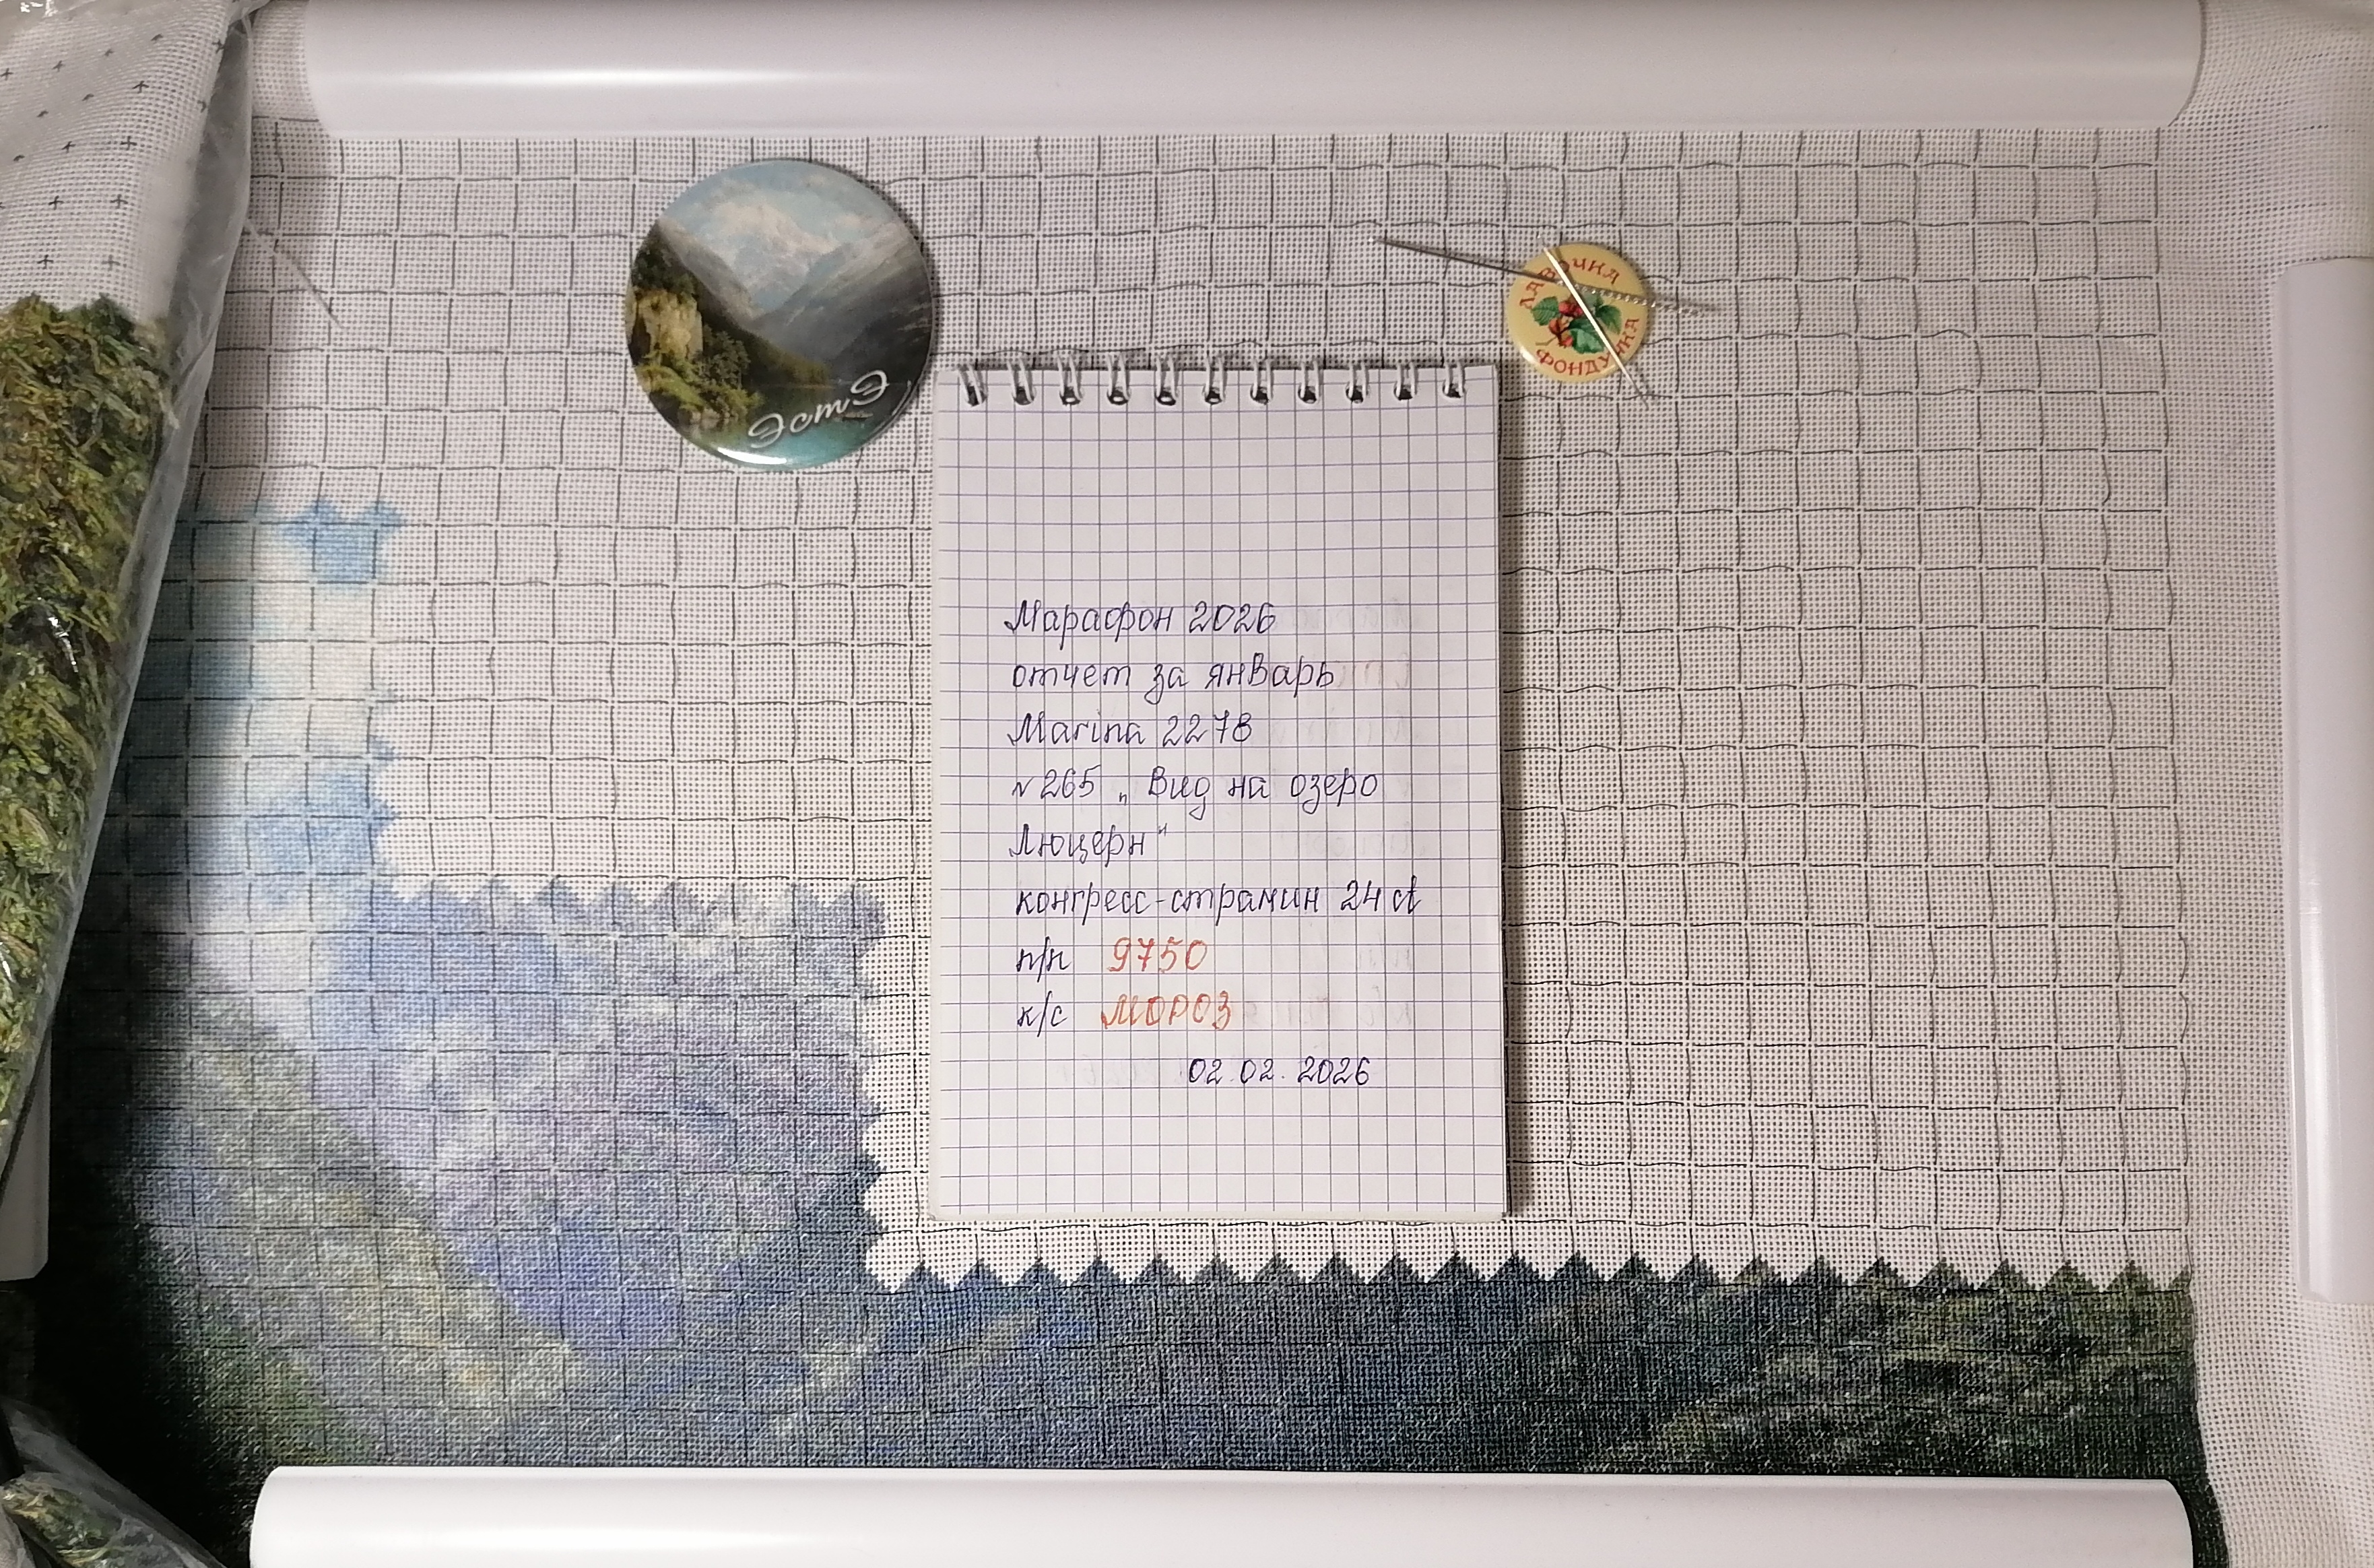 ЭстЭ
ЛАВОЧКА
ФОНДУЧКА
Марафон 2026
отчет за январь
Marina 2278
№265 „Вид на озеро
Люцерн"
конгресс-страмин 24 ct
п/п 9750
к/с МОРОЗ
02.02.2026